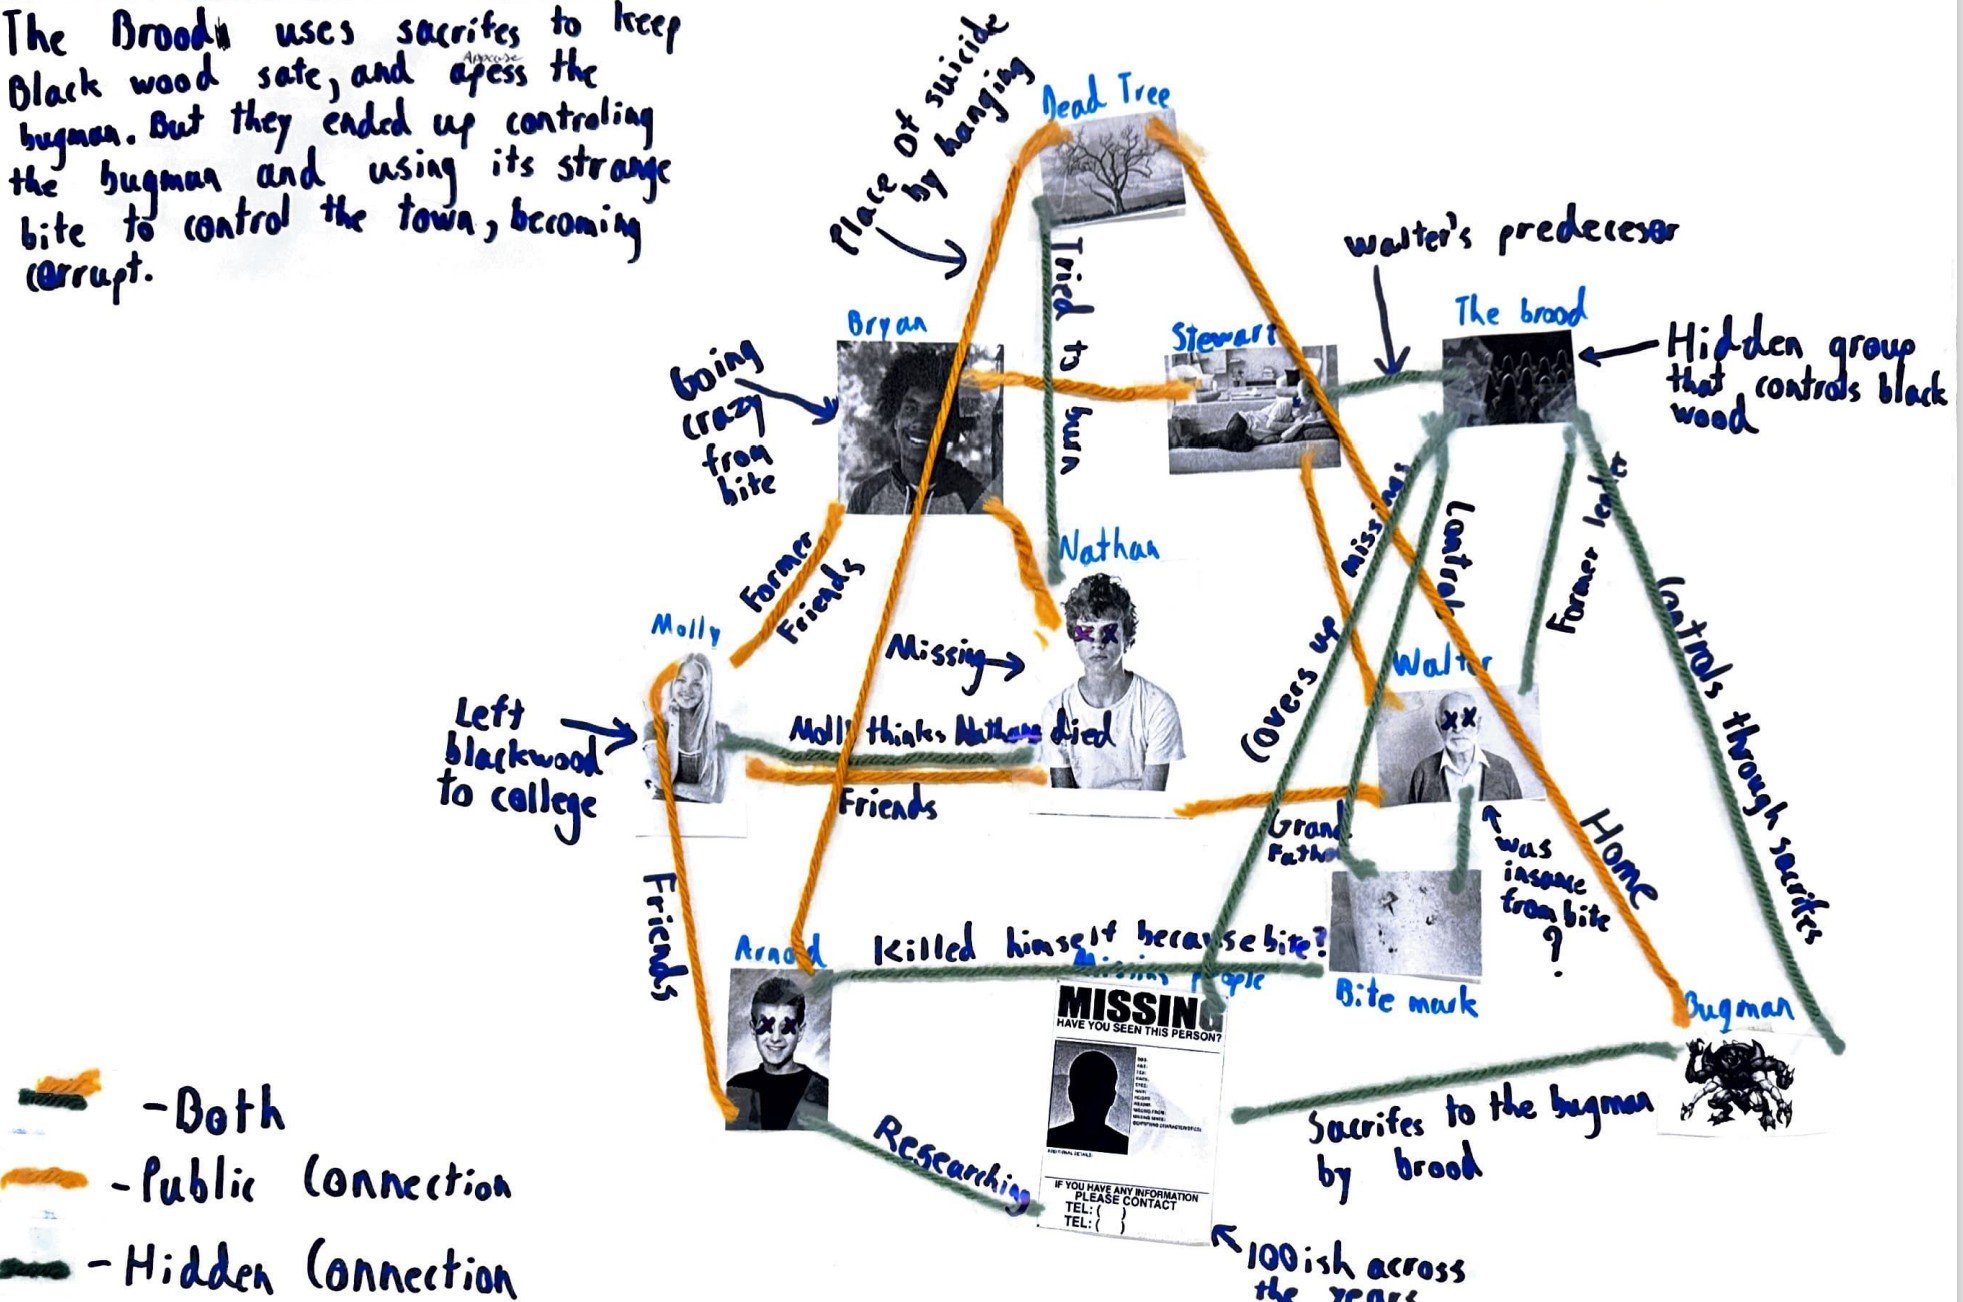 The Brood uses sacrifes to keep
Black wood safe, and apess the
Appease
bugman. But they ended up controling
the bugman and using its strange
bite to control the town, becoming
corrupt.
Place of suicide
by hanging
Dead Tree
Tried to burn
Walter's predecesor
The brood
Hidden group
that controls black
wood
Bryan
Stewart
Going
crazy
from
bite
Former
Friends
Nathan
Missing
Molly
Left
blackwood
to college
Molly thinks Nathan died
Friends
Covers up missings
Control
Former leader
Controls through sacrifes
Walter
Grand
Father
was
insane
from bite
?
Home
Friends
Arnold
Killed himself because bite?
Missing people
Bite mark
Bugman
MISSING
HAVE YOU SEEN THIS PERSON?
ADDITIONAL DETAILS:
IF YOU HAVE ANY INFORMATION
PLEASE CONTACT
TEL: ( )
TEL: ( )
Researching
Sacrifes to the bugman
by brood
100ish across
the years
- Both
- Public Connection
- Hidden Connection